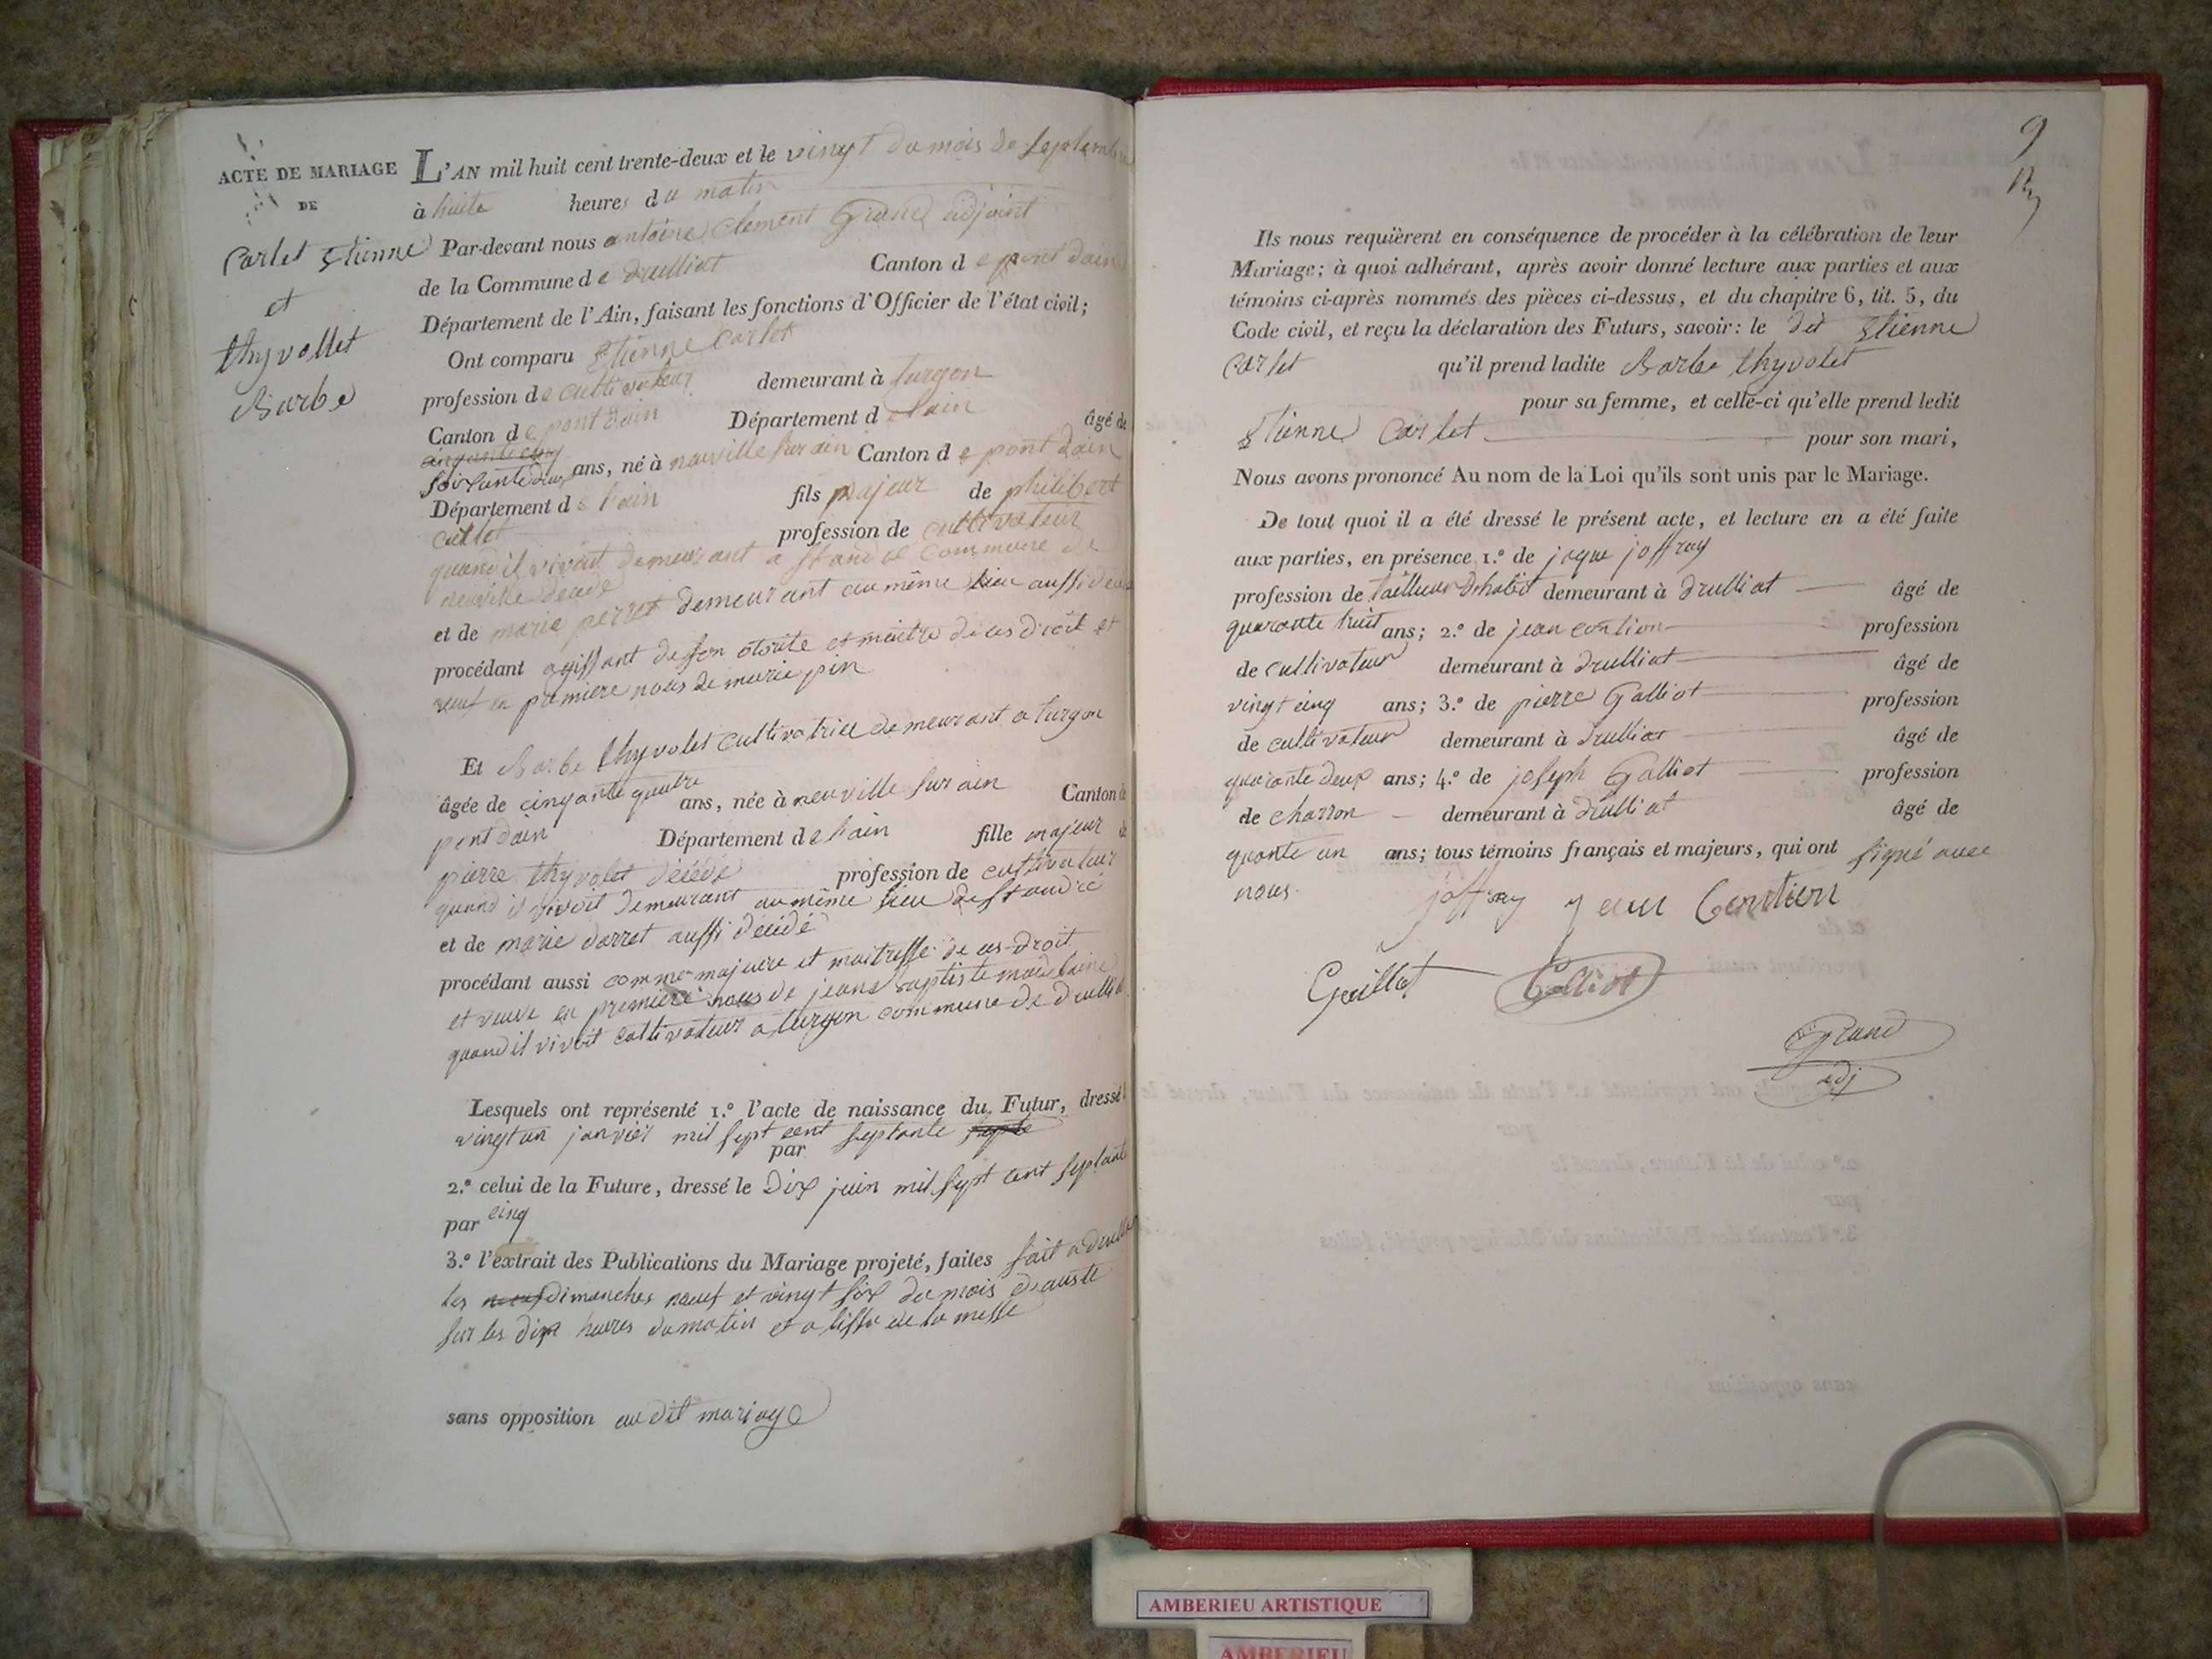 ACTE DE MARIAGE
DE
Carlet Etienne
et
thyvollet
Barbe
L'AN mil huit cent trente-deux et le vingt du mois de septembre
à huite heures du matin
Par-devant nous antoine Clement Grand adjoint
de la Commune de druilliat Canton de pont dain
Département de l'Ain, faisant les fonctions d'Officier de l'état civil;
Ont comparu Etienne Carlet
profession de cultivateur demeurant à turgon
Canton de pont dain Département de lain âgé de
soixante deux ans, né à neuville sur ain Canton de pont dain
Département de lain fils majeur de philibert
carlet profession de cultivateur
quand il vivoit demeurant a commune de
neuville décédé
et de marie perret demeurant au même lieu aussi
procédant agissant de son otorite et maitre de ces droit et
veuf en premiere nous de marie pin
Et Barbe thyvolet cultivatrice demeurant a turgon
âgée de cinqante quatre ans, née à neuville sur ain Canton de
pont dain Département de lain fille majeur de
pierre thyvolet décédé profession de cultivateur
quand il vivoit demeurant au même lieu de
et de marie darret aussi décédé
procédant aussi comme majeure et maitresse de ces droit
et veuve en premiere nous de jean baptiste
quand il vivoit cultivateur a turgon commune de druilliat
Lesquels ont représenté 1.º l'acte de naissance du Futur, dressé
vingt un janvier mil sept cent septante
par
2.º celui de la Future, dressé le dix juin mil sept cent septante
par cinq
3.º l'extrait des Publications du Mariage projeté, faites fait a
les dimanches neuf et vingt six du mois
sur les dix heures du matin et a lissu de la messe
sans opposition au dit mariage
9
Ils nous requièrent en conséquence de procéder à la célébration de leur
Mariage; à quoi adhérant, après avoir donné lecture aux parties et aux
témoins ci-après nommés des pièces ci-dessus, et du chapitre 6, tit. 5, du
Code civil, et reçu la déclaration des Futurs, savoir: le dit Etienne
carlet qu'il prend ladite Barbe thyvolet
pour sa femme, et celle-ci qu'elle prend ledit
Etienne Carlet pour son mari,
Nous avons prononcé Au nom de la Loi qu'ils sont unis par le Mariage.
De tout quoi il a été dressé le présent acte, et lecture en a été faite
aux parties, en présence 1.º de jaque joffray
profession de tailleur dhabit demeurant à druilliat âgé de
quarante huit ans; 2.º de jean profession
de cultivateur demeurant à druilliat âgé de
vingt cinq ans; 3.º de pierre Galliot profession
de cultivateur demeurant à druilliat âgé de
quarante deux ans; 4.º de joseph Galliot profession
de charron demeurant à druilliat âgé de
quante un ans; tous témoins français et majeurs, qui ont signé avec
nous.
joffray jean
Galliot
Grand
adj
AMBERIEU ARTISTIQUE
AMBERIEU